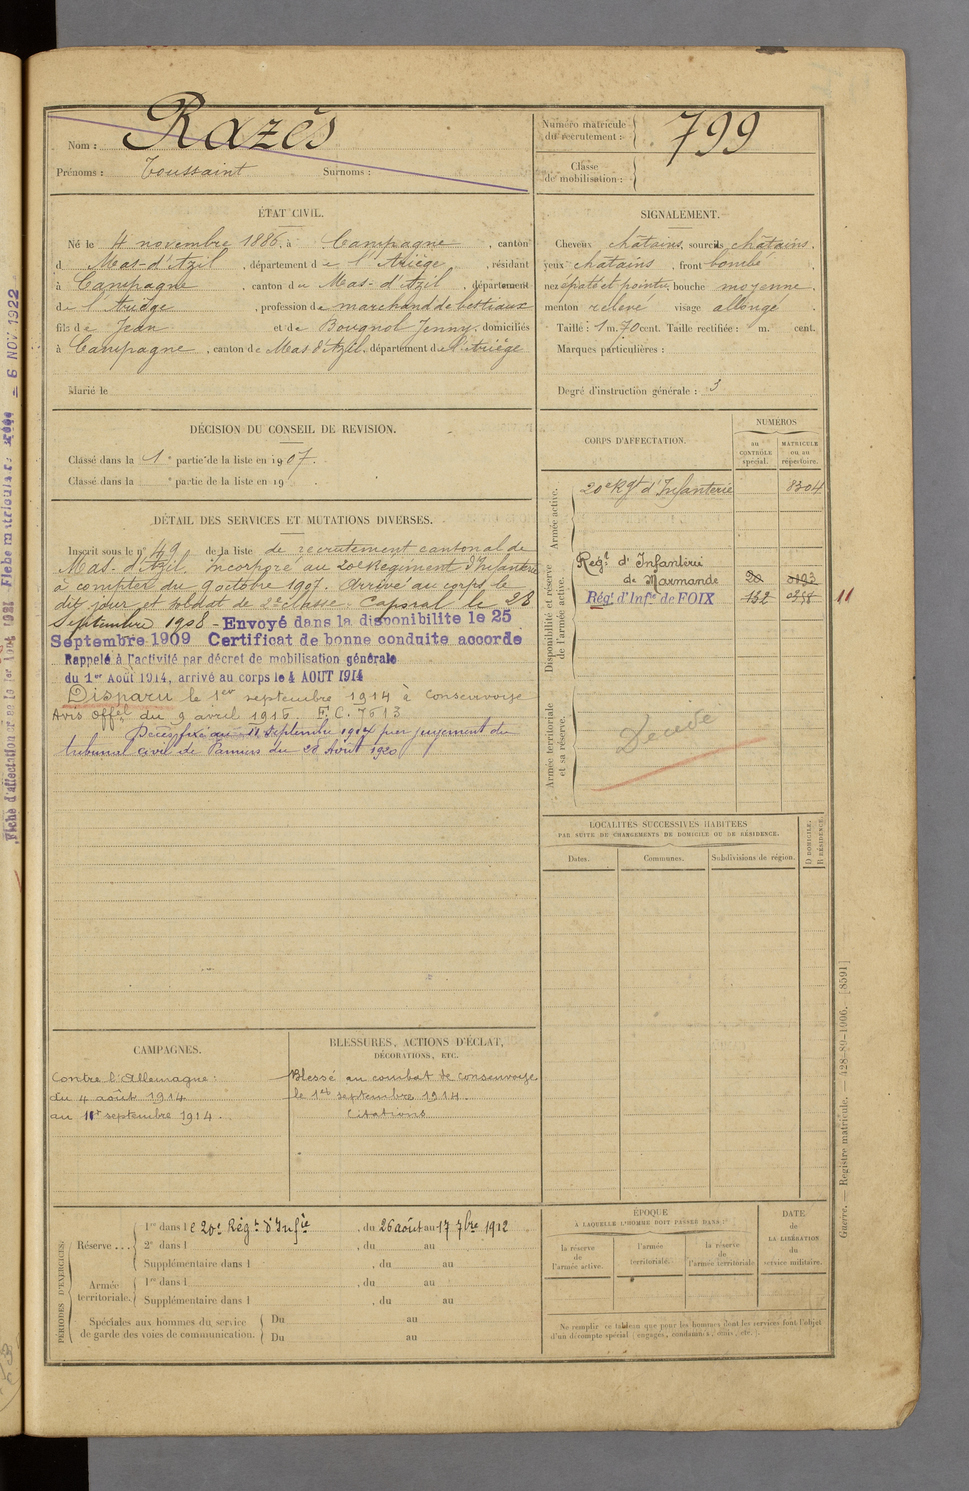 Nom : Razès
Prénoms : Toussaint Surnoms :
Numéro matricule du recrutement : 799
Classe de mobilisation :
ÉTAT CIVIL.
Né le 4 novembre 1886, à Campagne, canton
d Mas-d'Azil, département de l'Ariège, résidant
à Campagne, canton du Mas-d'Azil, département
de l'Ariège, profession de marchand de bestiaux
fils de Jean et de Bougnol Jenny, domiciliés
à Campagne, canton de Mas d'Azil, département de l'Ariège
Marié le
SIGNALEMENT.
Cheveux châtains, sourcils châtains,
yeux châtains, front bombé,
nez épaté et pointu, bouche moyenne,
menton relevé visage allongé.
Taille : 1 m. 70 cent. Taille rectifiée : m. cent.
Marques particulières :
Degré d'instruction générale : 3
DÉCISION DU CONSEIL DE REVISION.
Classé dans la 1e partie de la liste en 1907.
Classé dans la e partie de la liste en 19 .
DÉTAIL DES SERVICES ET MUTATIONS DIVERSES.
Inscrit sous le n° 49 de la liste de recrutement cantonal de
Mas-d'Azil. Incorporé au 20e Régiment d'Infanterie
à compter du 9 octobre 1907. Arrivé au corps le
dit jour et soldat de 2e classe. Caporal le 28
Septembre 1908 - Envoyé dans la disponibilite le 25
Septembre 1909 Certificat de bonne conduite accorde
Rappelé à l'activité par décret de mobilisation générale
du 1er Août 1914, arrivé au corps le 4 AOUT 1914
Disparu le 1er septembre 1914 à Consenvoye
Avis offel du 9 avril 1916. F.C. 7613
Décès fixé au 11 Septembre 1914 par jugement du
tribunal civil de Pamiers du 28 Août 1920
CORPS D'AFFECTATION.
NUMÉROS
au CONTRÔLE spécial.
MATRICULE ou au répertoire.
Armée active.
20e Rgt d'Infanterie 8304
Disponibilité et réserve de l'armée active.
Régt d'Infanterie
de Marmande 20
Régt d'Infie de FOIX 132
11
Armée territoriale et sa réserve.
Décédé
LOCALITÉS SUCCESSIVES HABITÉES
PAR SUITE DE CHANGEMENTS DE DOMICILE OU DE RÉSIDENCE.
Dates. Communes. Subdivisions de région.
D DOMICILE, R RÉSIDENCE.
CAMPAGNES.
Contre l'Allemagne :
du 4 août 1914
au 11 septembre 1914.
BLESSURES, ACTIONS D'ÉCLAT,
DÉCORATIONS, ETC.
Blessé au combat de Consenvoye
le 1er septembre 1914.
Citations
PÉRIODES D'EXERCICES:
Réserve...
1re dans le 20e Régt d'Infie, du 26 août au 17 7bre 1912
2e dans l , du au
Supplémentaire dans l , du au
Armée territoriale.
1re dans l , du au
Supplémentaire dans l , du au
Spéciales aux hommes du service
de garde des voies de communication.
Du au
Du au
ÉPOQUE
À LAQUELLE L'HOMME DOIT PASSER DANS :
la réserve de l'armée active.
l'armée territoriale.
la réserve de l'armée territoriale
DATE de LA LIBÉRATION du service militaire.
Ne remplir ce tableau que pour les hommes dont les services font l'objet
d'un décompte spécial (engagés, condamnés, omis, etc.)
Guerre. — Registre matricule. — 428-89-1906. [8591]
6 NOV 1922